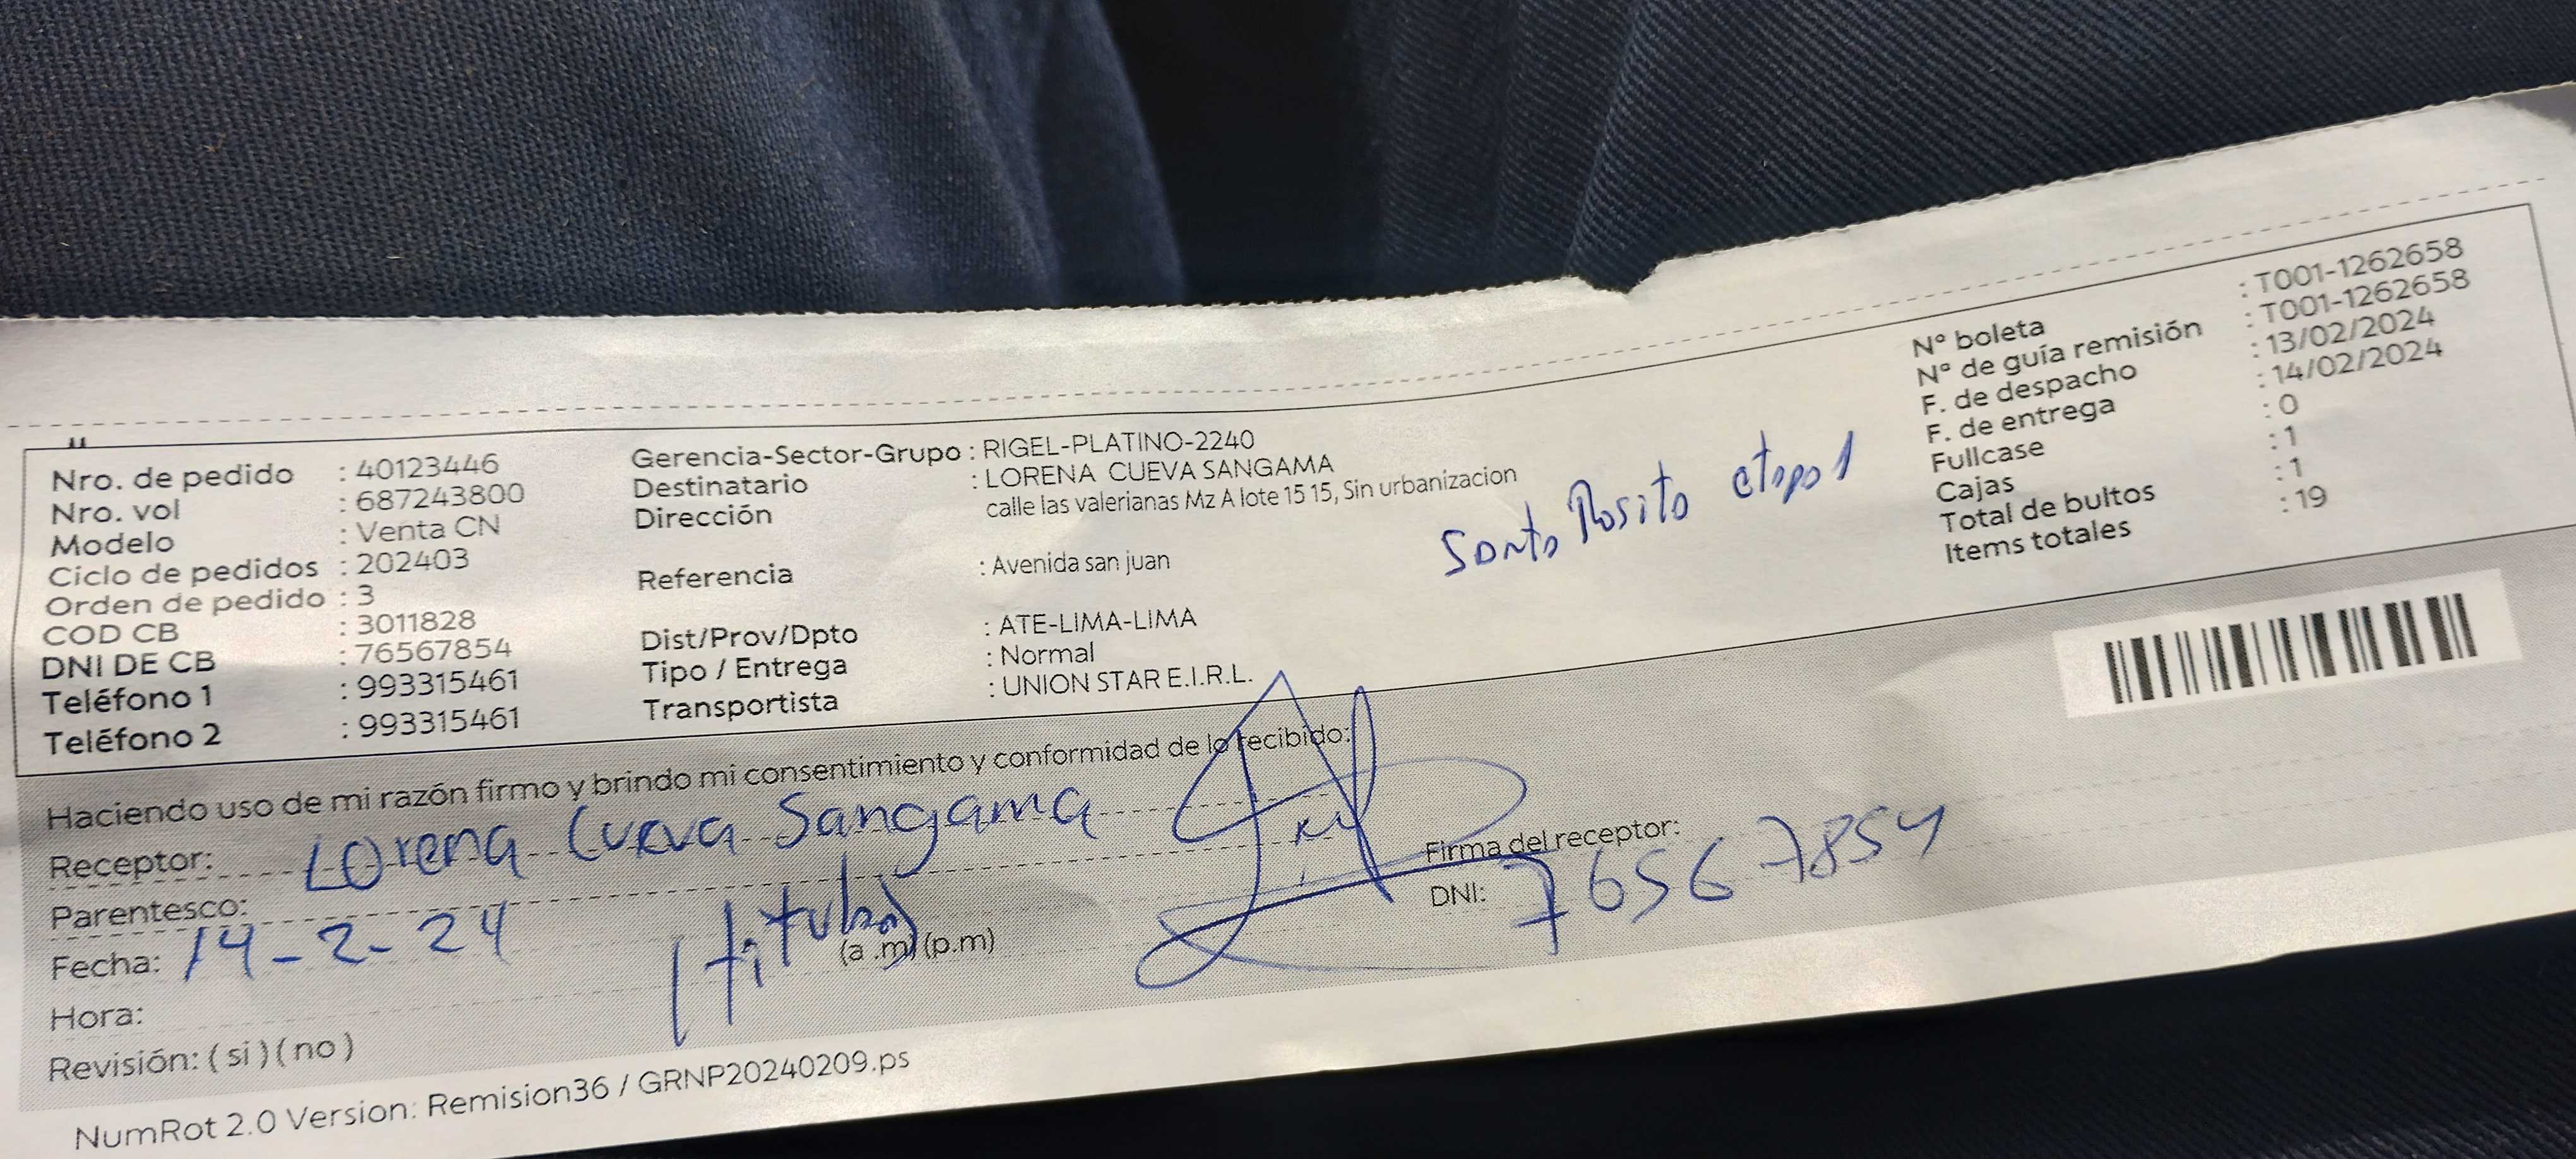 Nro. de pedido : 40123446
Nro. vol : 687243800
Modelo : Venta CN
Ciclo de pedidos : 202403
Orden de pedido : 3
COD CB : 3011828
DNI DE CB : 76567854
Teléfono 1 : 993315461
Teléfono 2 : 993315461
Gerencia-Sector-Grupo : RIGEL-PLATINO-2240
Destinatario : LORENA CUEVA SANGAMA
Dirección calle las valerianas Mz A lote 15 15, Sin urbanizacion
Santa Rosita etapa 1
Referencia : Avenida san juan
Dist/Prov/Dpto : ATE-LIMA-LIMA
Tipo / Entrega : Normal
Transportista : UNION STAR E.I.R.L.
Nº boleta : T001-1262658
Nº de guía remisión : T001-1262658
F. de despacho : 13/02/2024
F. de entrega : 14/02/2024
Fullcase : 0
Cajas : 1
Total de bultos : 1
Items totales : 19
Haciendo uso de mi razón firmo y brindo mi consentimiento y conformidad de lo recibido:
Receptor: Lorena Cueva Sangama
Firma del receptor:
Parentesco:
DNI: 76567854
Fecha: 14-2-24
titular
Hora: (a .m) (p.m)
Revisión: ( si ) ( no )
NumRot 2.0 Version: Remision36 / GRNP20240209.ps